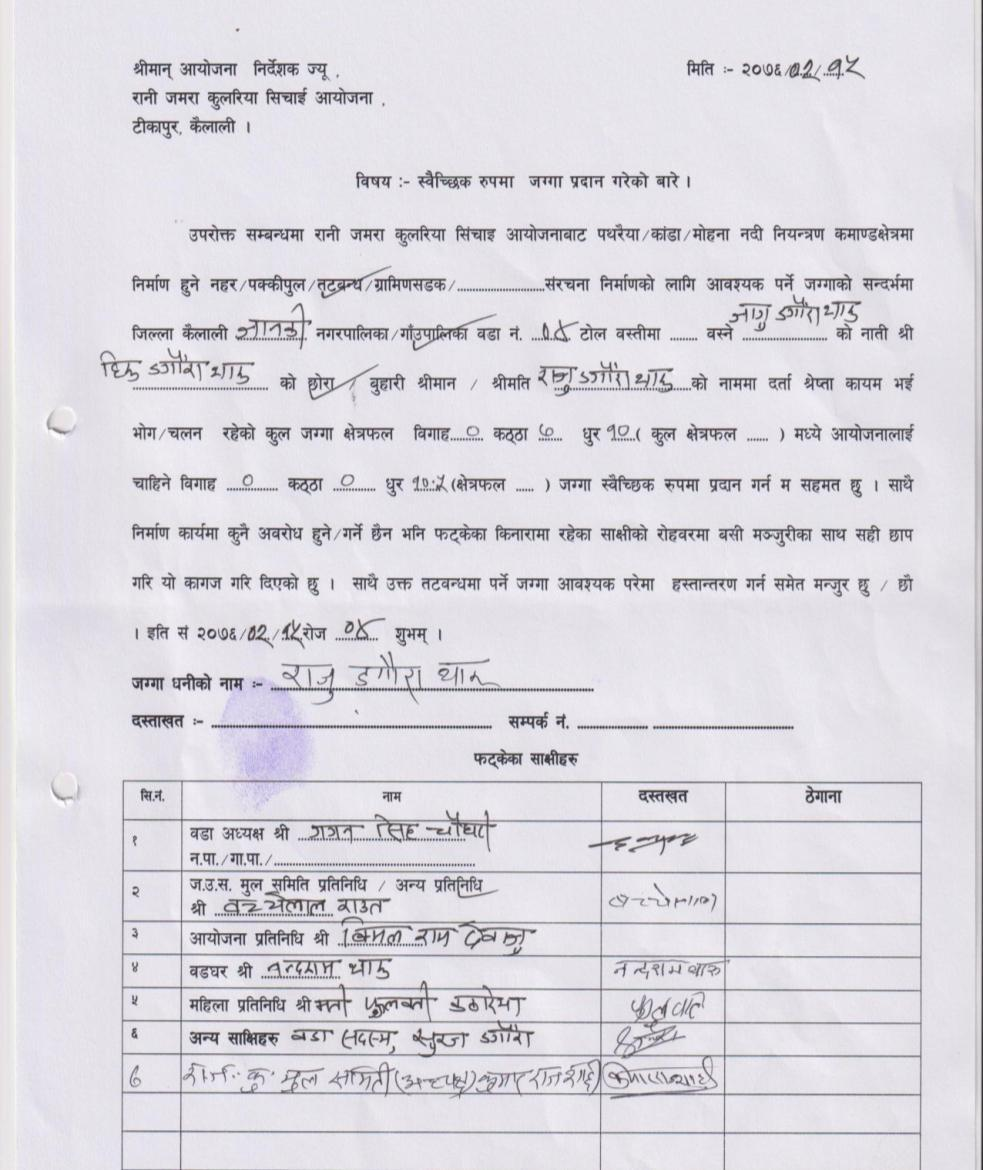 श्रीमान् आयोजना निर्देशक ज्यू , मिति :- २०७६/०२/१५
रानी जमरा कुलरिया सिचाई आयोजना ,
टीकापुर, कैलाली ।
विषय :- स्वैच्छिक रुपमा जग्गा प्रदान गरेको बारे ।
उपरोक्त सम्बन्धमा रानी जमरा कुलरिया सिंचाइ आयोजनाबाट पथरैया/कांडा/मोहना नदी नियन्त्रण कमाण्डक्षेत्रमा
निर्माण हुने नहर/पक्कीपुल/तटबन्ध/ग्रामिणसडक/....................संरचना निर्माणको लागि आवश्यक पर्ने जग्गाको सन्दर्भमा
जिल्ला कैलाली जानकी नगरपालिका/गाँउपालिका वडा नं. ०४ टोल वस्तीमा ........ वस्ने जागु डगौरा थारु को नाती श्री
डगौरा थारु को छोरा / बुहारी श्रीमान / श्रीमति राजु डगौरा थारु को नाममा दर्ता श्रेप्ता कायम भई
भोग/चलन रहेको कुल जग्गा क्षेत्रफल विगाह ० कठ्ठा ७ धुर १० ( कुल क्षेत्रफल ...... ) मध्ये आयोजनालाई
चाहिने विगाह ० कठ्ठा ० धुर १०.५ (क्षेत्रफल ..... ) जग्गा स्वैच्छिक रुपमा प्रदान गर्न म सहमत छु । साथै
निर्माण कार्यमा कुनै अवरोध हुने/गर्ने छैन भनि फट्केका किनारामा रहेका साक्षीको रोहवरमा बसी मञ्जुरीका साथ सही छाप
गरि यो कागज गरि दिएको छु । साथै उक्त तटवन्धमा पर्ने जग्गा आवश्यक परेमा हस्तान्तरण गर्न समेत मन्जुर छु / छौ
। इति सं २०७६/०२/१५ रोज ०४ शुभम् ।
जग्गा धनीको नाम :- राजु डगौरा थारु
दस्ताखत :- .................... सम्पर्क नं. ....................
फट्केका साक्षीहरु
सि.नं. नाम दस्तखत ठेगाना
१ वडा अध्यक्ष श्री गगन सिंह चौधरी
न.पा./गा.पा./....................
२ ज.उ.स. मुल समिति प्रतिनिधि / अन्य प्रतिनिधि
श्री बच्चेलाल राउत बच्चेलाल
३ आयोजना प्रतिनिधि श्री बिमल राम
४ वडघर श्री नन्दराम थारु नन्दराम थारु
५ महिला प्रतिनिधि श्रीमती फुलवती कठरिया फुलवति
६ अन्य साक्षिहरु वडा सदस्य, सुरज डगौरा
७ कु. मुल समिती (अध्यक्ष) कुमार राज शाही